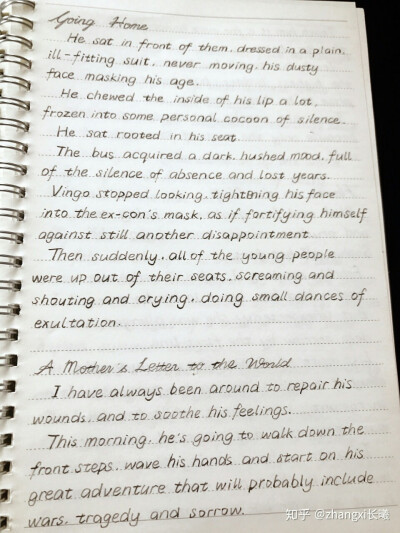 Going Home
He sat in front of them, dressed in a plain,
ill-fitting suit, never moving, his dusty
face masking his age.
He chewed the inside of his lip a lot,
frozen into some personal cocoon of silence.
He sat rooted in his seat.
The bus acquired a dark, hushed mood, full
of the silence of absence and lost years.
Vingo stopped looking, tightening his face
into the ex-con's mask, as if fortifying himself
against still another disappointment.
Then suddenly, all of the young people
were up out of their seats, screaming and
shouting and crying, doing small dances of
exultation.
A Mother's Letter to the World
I have always been around to repair his
wounds, and to soothe his feelings.
This morning, he's going to walk down the
front steps, wave his hands and start on his
great adventure that will probably include
wars, tragedy and sorrow.
知乎 @zhangxi长曦